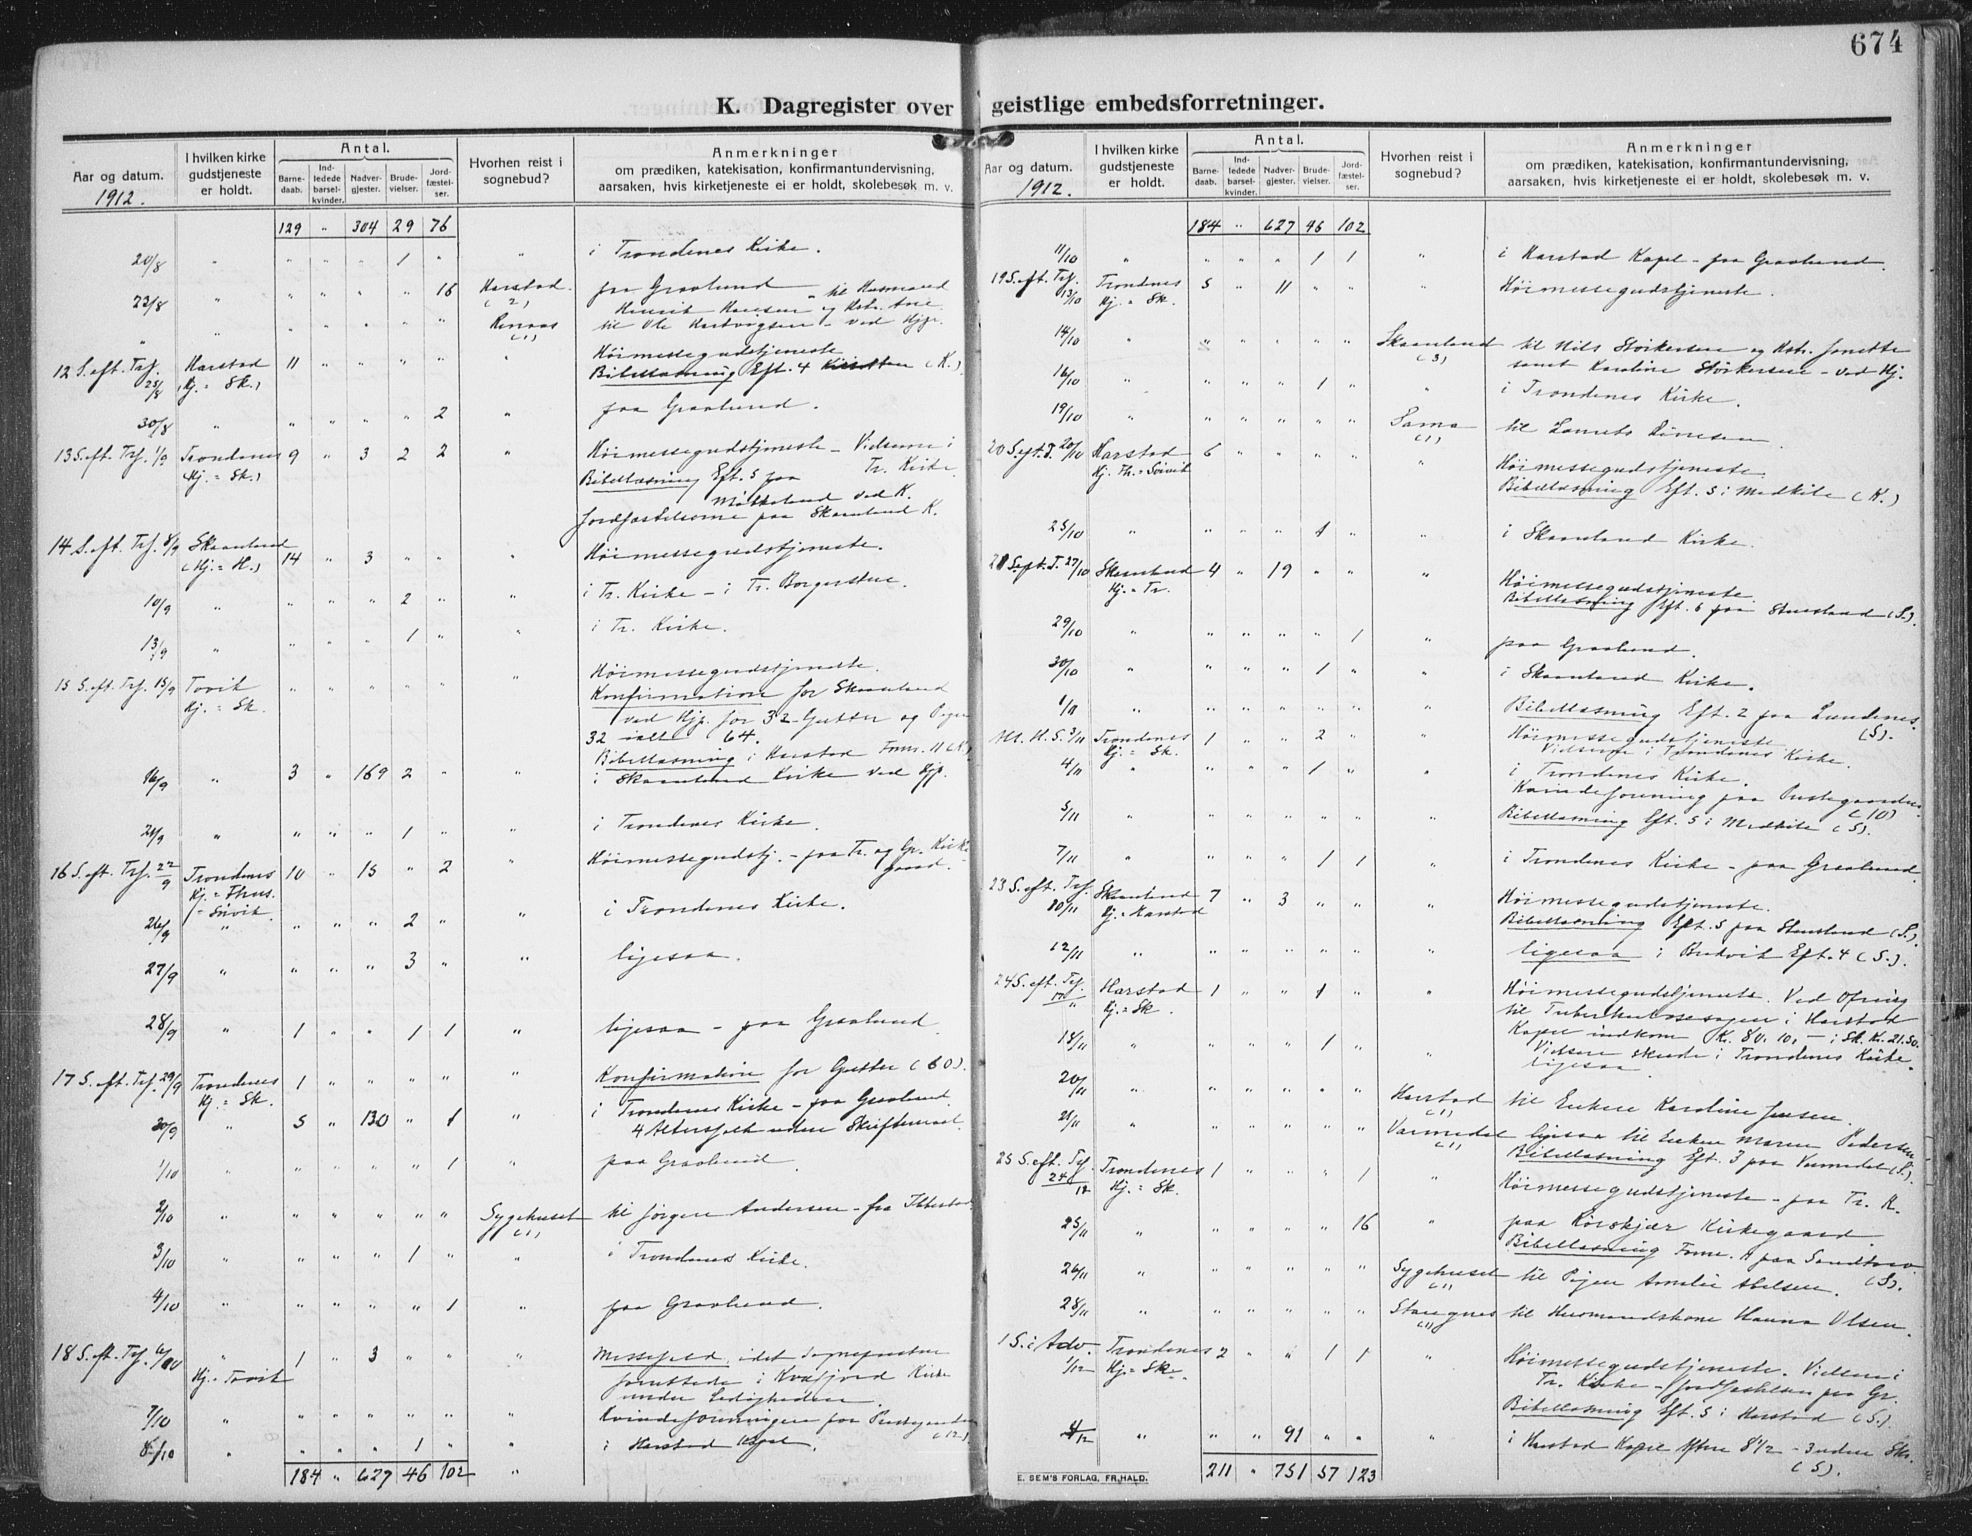 674
K. Dagregister over geistlige embedsforretninger.
Aar og datum. 1912.
I hvilken kirke gudstjeneste er holdt.
Antal.
Barnedaab. Indledede barselkvinder. Nadvergjester. Brudevielser. Jordfæstelser.
Hvorhen reist i sognebud?
Anmerkninger
om prædiken, katekisation, konfirmantundervisning,
aarsaken, hvis kirketjeneste ei er holdt, skolebesøk m. v.
129 " 304 29 76
20/8 " " " " 1 " " i Trondenes Kirke.
23/8 " " " " " 16 Harstad (2) paa Graalund - til Husmand
Henrik Hansen og Hstr. Ane
" " " " " " Renaas (1) til Ole Hartvigsen - ved Hjp.
12 S. eft. Trf. 25/8 Harstad (Hj. = Sk.) 11 " " " " " Høimessegudstjeneste
Bibellæsning Eft. 4 (K.)
30/8 " " " " " 2 " paa Graalund.
13 S. eft. Trf. 1/9 Trondenes (Hj. = Sk.) 9 " 3 2 2 " Høimessegudstjeneste - Vielserne i
Tr. Kirke
Bibellæsning Eft. 5 paa
ved K.
Jordfæstelserne paa Skaanland K.
14 S. eft. Trf. 8/9 Skaanland (Hj. = H.) 14 " 3 " " " Høimessegudstjeneste.
10/9 " " " " 2 " " i Tr. Kirke - i Tr. Borgerstue.
13/9 " " " " 1 " " i Tr. Kirke.
15 S. eft. Trf. 15/9 Tovik Hj. = Sk. " " " " " " Høimessegudstjeneste.
Konfirmation for Skaanland
ved Hjp. for 32 Gutter og Piger
32 ialt 64.
Bibellæsning i Harstad Form. 11 (K.)
16/9 " 3 " 169 2 " " i Skaanland Kirke ved Hjp.
21/9 " " " " 1 " " i Trondenes Kirke.
16 S. eft. Trf. 22/9 Trondenes Hj. = Thus. = Sørvik. 10 " 15 " 2 " Høimessegudstj. - paa Tr. og Gr. Kirkegaard.
26/9 " " " " 2 " i Trondenes Kirke.
27/9 " " " " 3 " ligesaa.
28/9 " 1 " " 1 1 " ligesaa - paa Graalund
17 S. eft. Trf. 29/9 Trondenes Hj. = Sk. 1 " " " " " Konfirmation for Gutter (60).
30/9 " 5 " 130 " 1 " i Trondenes Kirke - paa Graalund.
4 Altersfolk uden Skriftemaal.
1/10 " " " " " 1 " paa Graalund.
2/10 " " " " " " Sygehuset (1) til Jørgen Andersen - fra Ibbestad.
3/10 " " " " 1 " " i Trondenes Kirke.
4/10 " " " " " 1 " paa Graalund.
18 S. eft. Trf. 6/10 " Hj. = Tovik 1 " 3 " " " Messefald, idet Sognepresten
forrettede i Kvæfjord Kirke
under Ledigheden.
7/10 " " " " " " " Kvindeforeningen paa Prestegaarden (12).
8/10 " " " " 1 " " i Harstad Kapel.
184 " 627 46 102 "
Aar og datum. 1912.
I hvilken kirke gudstjeneste er holdt.
Antal.
Barnedaab. Indledede barselkvinder. Nadvergjester. Brudevielser. Jordfæstelser.
Hvorhen reist i sognebud?
Anmerkninger
om prædiken, katekisation, konfirmantundervisning,
aarsaken, hvis kirketjeneste ei er holdt, skolebesøk m. v.
184 " 627 46 102
11/10 " " " " 1 1 " i Harstad Kapel - paa Graalund.
19 S. eft. Trf. 13/10 Trondenes Hj. = Sk. 5 " 11 " " " Høimessegudstjeneste.
14/10 " " " " " " Skaanland (3) til Nils Størkersen og Hstr. Jonette
samt Karoline Størkersen - ved Hj.
16/10 " " " " 1 " " i Trondenes Kirke.
19/10 " " " " " " Sama (1) til Laurits
20 S. eft. T. 20/10 Harstad Hj. Th. = Sørvik 6 " " " " " Høimessegudstjeneste.
Bibellæsning Eft. 5 i Medkile (K.)
25/10 " " " " 1 " " i Skaanland Kirke.
21 S. eft. T. 27/10 Skaanland Hj. = Tr. 4 " 19 " " " Høimessegudstjeneste
Bibellæsning Eft. 6 paa Stensland (S.).
29/10 " " " " " 1 " paa Graalund.
30/10 " " " " 1 " " i Skaanland Kirke.
1/11 " " " " " " " Bibellæsning Eft. 2 paa Lundenes. (S).
All. H. S. 3/11 Trondenes Hj. = Sk. 1 " " 2 " " Høimessegudstjeneste
Vielserne i Trondenes Kirke.
4/11 " " " " 1 " " i Trondenes Kirke.
5/11 " " " " " " Kvindeforening paa Prestegaarden (10)
Bibellæsning Eft. 5 i Medkile (S).
7/11 " " " " 1 1 " i Trondenes Kirke - paa Graalund.
23 S. eft. Trf. 10/11 Skaanland Hj. = Harstad 7 " 3 " " " Høimessegudstjeneste.
Bibellæsning Eft. 5 paa Stensland (S.).
12/11 " " " " " " " ligesaa i Brudvik Eft. 4 (S.).
24 S. eft. Trf. 17/11 Harstad Hj. = Sk. 1 " " 1 " " Høimessegudstjeneste. Ved Ofring
til Tuberkulosesagen i Harstad
Kapel indkom Kr. 80.10, - i Sk. Kr. 21.50.
Vielsen skede i Trondenes Kirke.
18/11 " " " " 1 " " ligesaa
20/11 " " " " " " Harstad (1) til Enken Karoline Jensen.
21/11 " " " " " " Varmedal (1) ligesaa til Enken Maren Pedersen
Bibellæsning Eft. 3 paa Varmedal (S.).
25 S. eft. Trf. 24/11 Trondenes Hj. = Sk. 1 " " " 1 " Høimessegudstjeneste - paa Tr. K.
25/11 " " " " " 16 " paa Kørskjær Kirkegaard.
Bibellæsning Form. 11 paa Sandtorv (S).
26/11 " " " " " " Sygehuset (1) til Pigen Amelie Abelsen.
28/11 " " " " " " Stangnes (1) til Husmandskone Hanna Olsen.
1 S. i Adv. 1/12 Trondenes Hj. = Sk. 2 " " 1 1 " Høimessegudstjeneste. Vielsen i
Tr. Kirke - Jordfæstelsen paa Gr.
Bibellæsning Eft. 5 i Harstad (S.).
4/12 " " " 91 " " " i Harstad Kapel Aften 8 1/2 - 3 uden Skr. (S).
211 " 751 57 123
E. SEM'S FORLAG, FR.HALD.